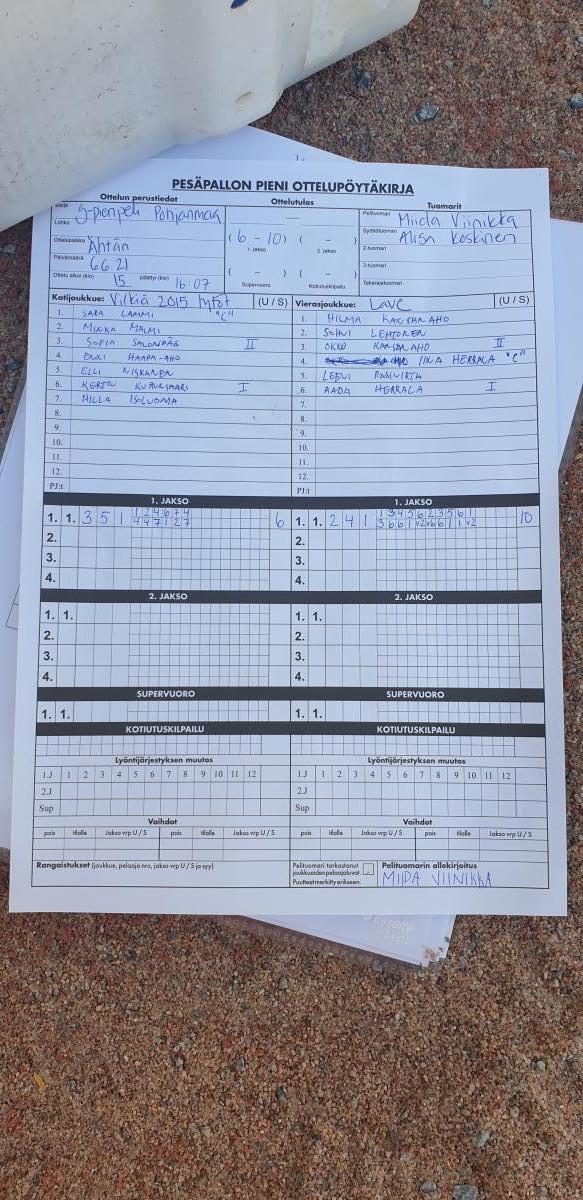 PESÄPALLON PIENI OTTELUPÖYTÄKIRJA
Ottelun perustiedot Ottelutulos Tuomarit
Sarja g-pienpeli Pohjanmaa
Lohko
Ottelupaikka Ähtäri
Päivämäärä 6.6.21
Ottelu alkoi (klo) 15 päättyi (klo) 16:07
(6 - 10) ( - )
1. jakso 2. jakso
( - ) ( - )
Supervuoro Kotiutuskilpailu
Pelituomari Miida Viinikka
Syöttötuomari Alisa Koskinen
2-tuomari
3-tuomari
Takarajatuomari
Kotijoukkue: Virkiä 2015 tytöt (U / S)
1. SARA LAMMI "C"
2. MINKA MALMI
3. SOFIA SALONPÄÄ II
4. HAAPA-AHO
5. ELLI NISKANEN
6. KERTTU I
7. HILLA ISOLUOMA
8.
9.
10.
11.
12.
PJ:t
Vierasjoukkue: LaVe (U / S)
1. HILMA KANGAS-AHO
2. SOHVI LEHTONEN
3. OKKO KANGAS-AHO II
4. IINA HERRALA "C"
5. LEEVI
6. AADA HERRALA I
7.
8.
9.
10.
11.
12.
PJ:t
1. JAKSO 1. JAKSO
1. 1. 3 5 1 1 2 4 6 7 4 6
4 4 7 1 2 7
2.
3.
4.
1. 1. 2 4 1 1 3 4 5 6 2 3 5 6 1 10
3 6 6 1 V2 V6 6 1 1 V2
2.
3.
4.
2. JAKSO 2. JAKSO
1. 1. 1. 1.
2. 2.
3. 3.
4. 4.
SUPERVUORO SUPERVUORO
1. 1. 1. 1.
KOTIUTUSKILPAILU KOTIUTUSKILPAILU
Lyöntijärjestyksen muutos Lyöntijärjestyksen muutos
1.J 1 2 3 4 5 6 7 8 9 10 11 12 1.J 1 2 3 4 5 6 7 8 9 10 11 12
2.J 2.J
Sup Sup
Vaihdot Vaihdot
pois tilalle Jakso vrp U / S pois tilalle Jakso vrp U / S pois tilalle Jakso vrp U / S pois tilalle Jakso vrp U / S
Rangaistukset (joukkue, pelaaja nro, jakso vrp U / S ja syy)
Pelituomari tarkastanut
joukkueiden pelaajaluvat.
Puutteet merkitty erikseen.
Pelituomarin allekirjoitus
MIIDA VIINIKKA